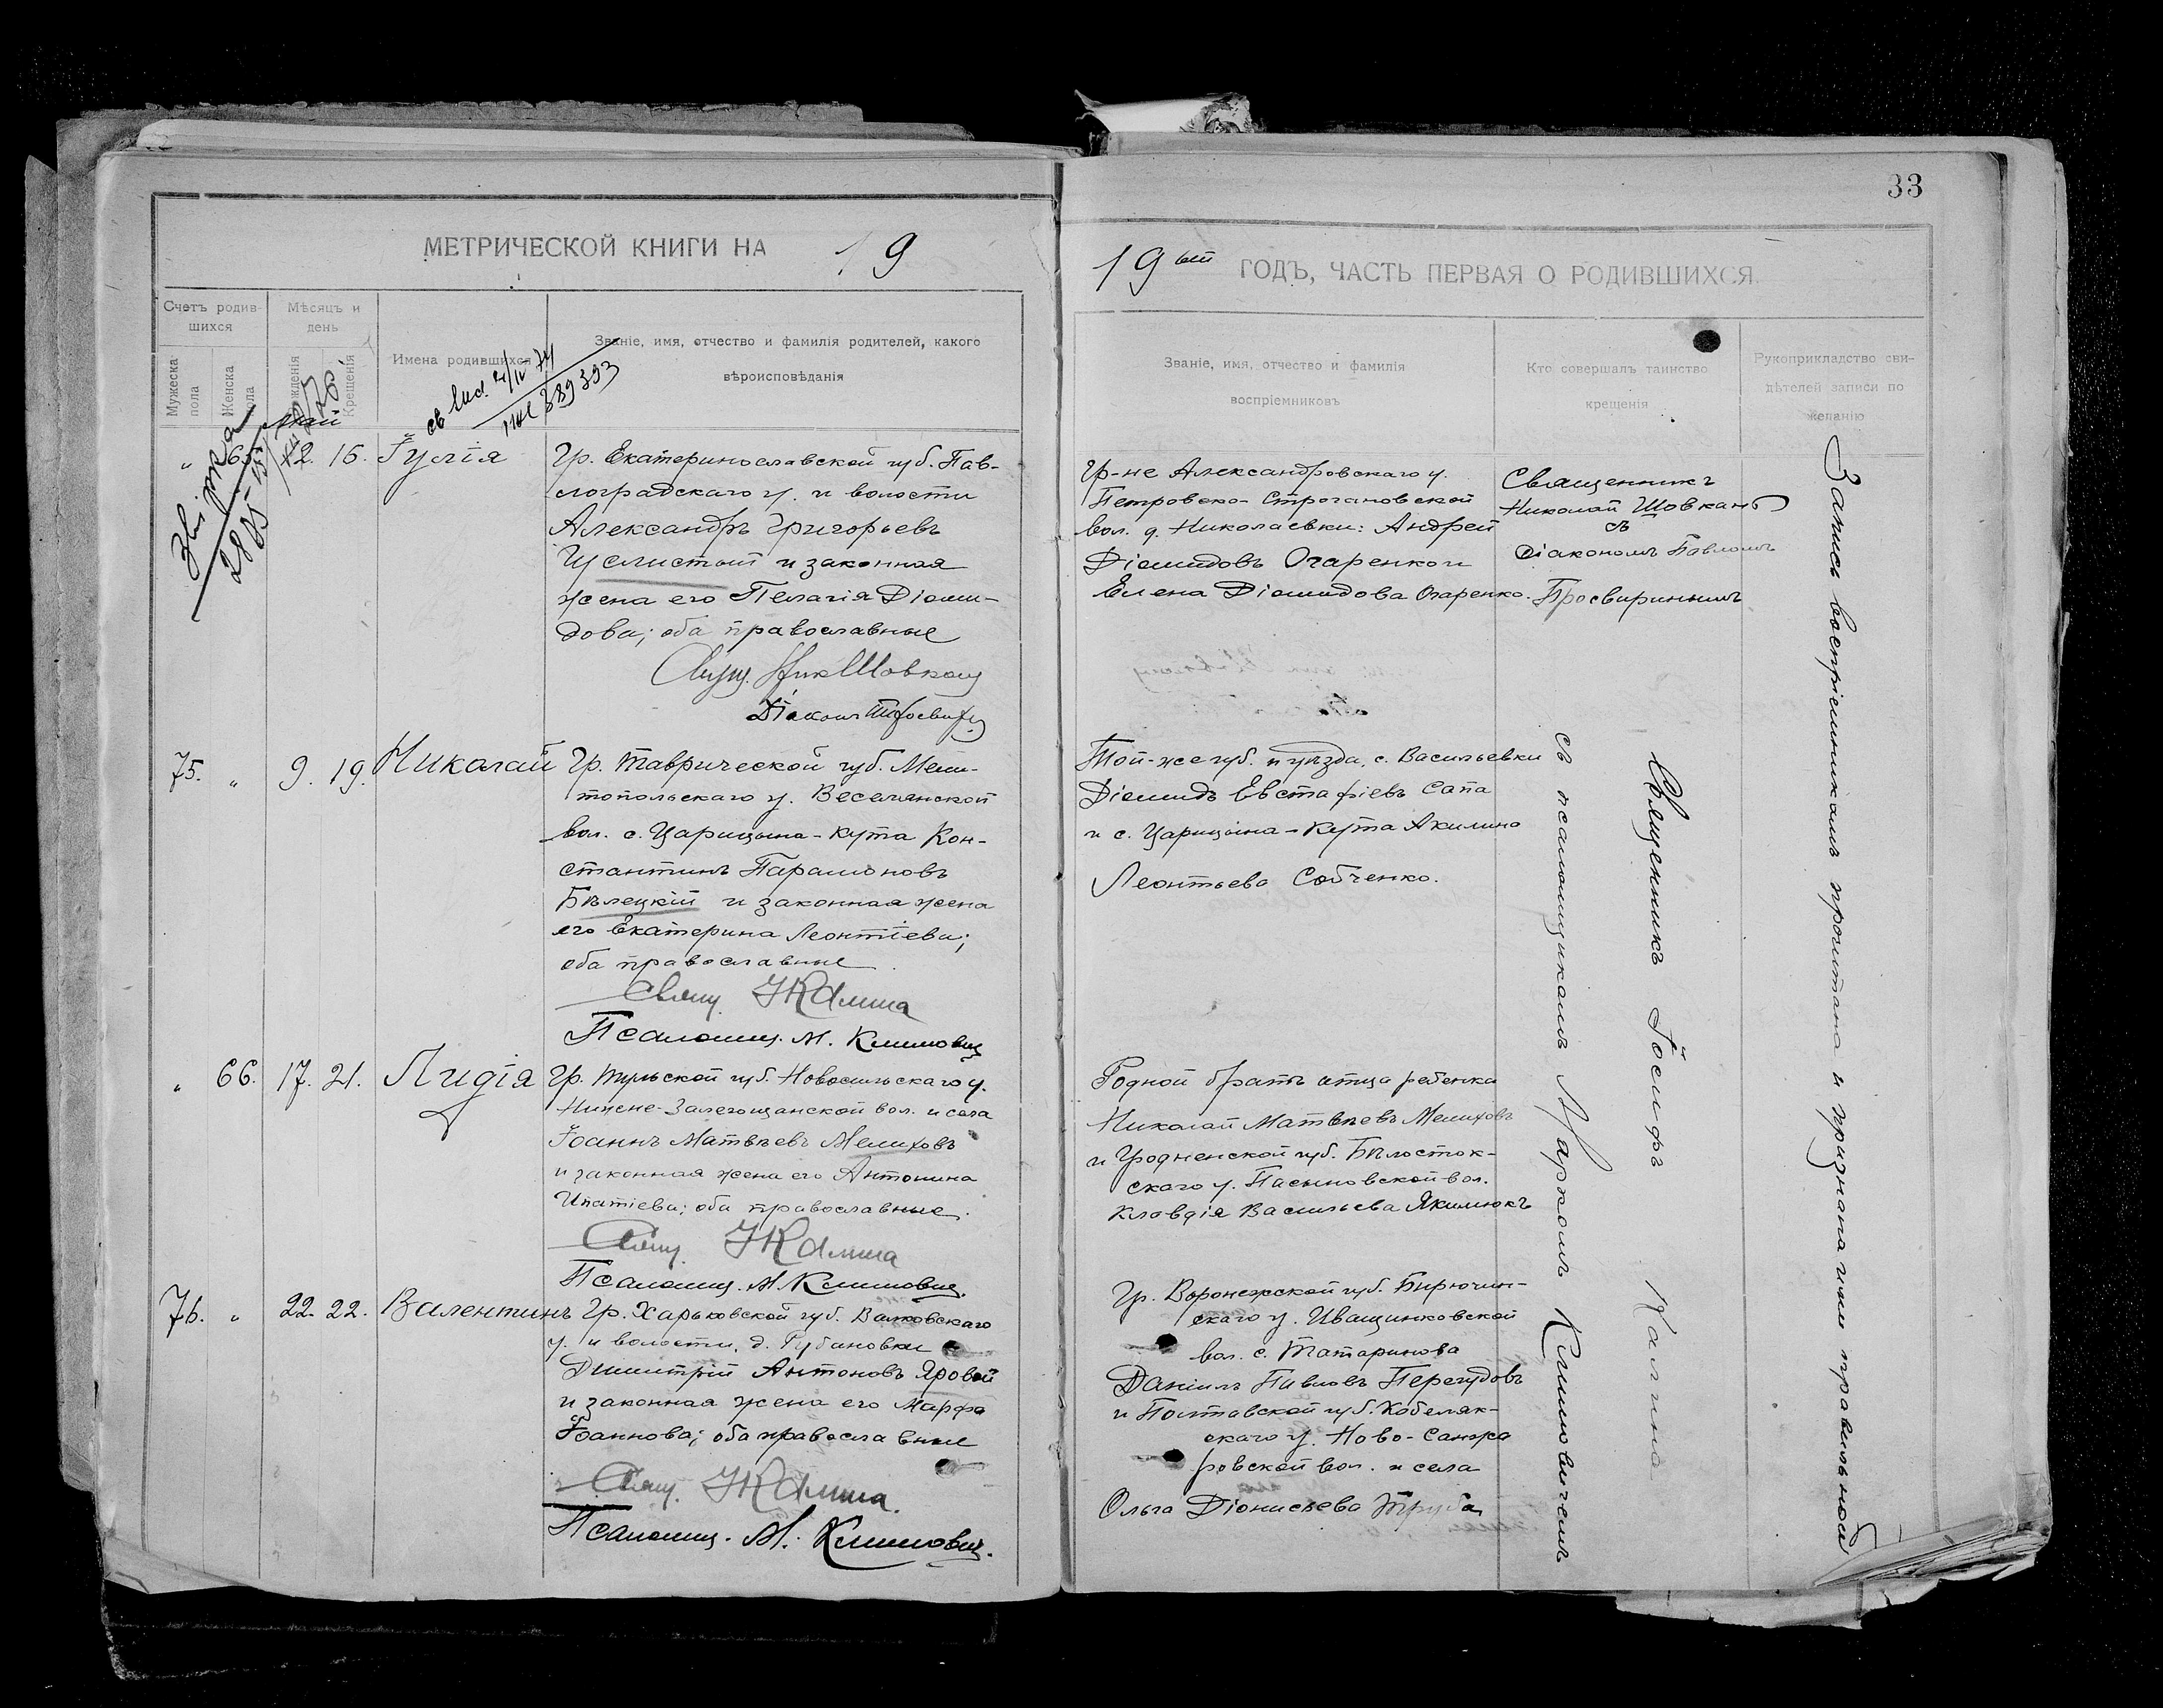 33
МЕТРИЧЕСКОЙ КНИГИ НА 19
19ый ГОДЪ, ЧАСТЬ ПЕРВАЯ О РОДИВШИХСЯ.
Счетъ родив-
шихся
Мужеска
пола
Женска
пола
Мѣсяцъ и
день
рожденія
Крещенія
Имена родившихся
Званіе, имя, отчество и фамилія родителей, какого
вѣроисповѣданія
Званіе, имя, отчество и фамилія
воспріемниковъ
Кто совершалъ таинство
крещенія
Рукоприкладство сви-
дѣтелей записи по
желанію
389393
Звірка
2885
Май
„ 65. 12. 16. Іулія
Гр. Екатеринославской губ. Пав-
лоградскаго у. и волости
Александръ Григорьевъ
Щелистый и законная
жена его Пелагія Діоми-
дова; оба православные
Свящ. Ник Шовкош
Діаконъ
Гр-не Александровскаго у.
Петровско-Строгановской
вол. д. Николаевки: Андрей
Діомидовъ Огаренко и
Елена Діомидова Огаренко.
Священникъ
Николай Шовкань
съ
діакономъ Павломъ
Просвиринымъ
75. „ 9. 19. Николай
Гр. Таврической губ. Мели-
топольскаго у. Веселянской
вол. с. Царицына-Кута Кон-
стантинъ Парамоновъ
Бѣлецкій и законная жена
его Екатерина Леонтіева;
оба православные
Свящ. І Калина
Псаломщ. М. Климович
Той-же губ. и уѣзда, с. Васильевки
Діомидъ Евстафіевъ Сапа
и с. Царицына-Кута Акилина
Леонтьева Собченко.
„ 66. 17. 21. Лидія
Гр. Тульской губ. Новосильскаго у.
Нижне-Залегощанской вол. и села
Іоаннъ Матвѣевъ Мелиховъ
и законная жена его Антонина
Ипатіева; оба православные.
Свящ. І Калина
Псаломщ. М. Климович.
Родной братъ отца ребенка
Николай Матвѣевъ Мелиховъ
и Гродненской губ. Бѣлосток-
скаго у. Пасынковской вол.
Клавдія Васильева Якимюкъ
76. „ 22. 22. Валентинъ
Гр. Харьковской губ. Валковскаго
у. и волости, д. Губановки
Димитрій Антоновъ Яровой
и законная жена его Марфа
Іоаннова; оба православные
Свящ. І Калина.
Псаломщ. М. Климович.
Гр. Воронежской губ. Бирючин-
скаго у. Иващинковской
вол. с. Татаринова
Даніилъ Павловъ Перегудовъ
и Полтавской губ. Кобеляк-
скаго у. Ново-Санжа
ровской вол. и села
Ольга Діонисьева Труба
Священникъ Іосифъ Калина
съ псаломщикомъ Маркомъ Климовичемъ
Запись воспріемникамъ прочитана и признана ими правильной